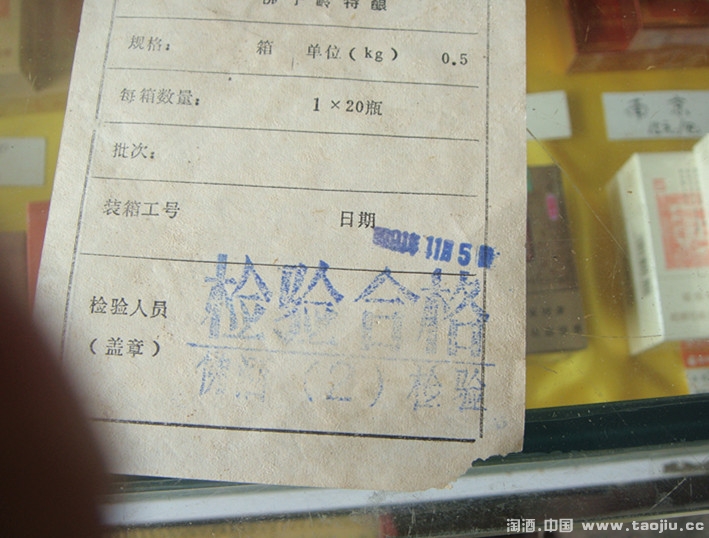 佛子岭特酿
规格： 箱 单位(kg) 0.5
每箱数量： 1×20瓶
批次：
装箱工号 日期
11月5日
检验人员 检验合格
(盖章) (2)检验
南京
淘酒.中国 www.taojiu.cc